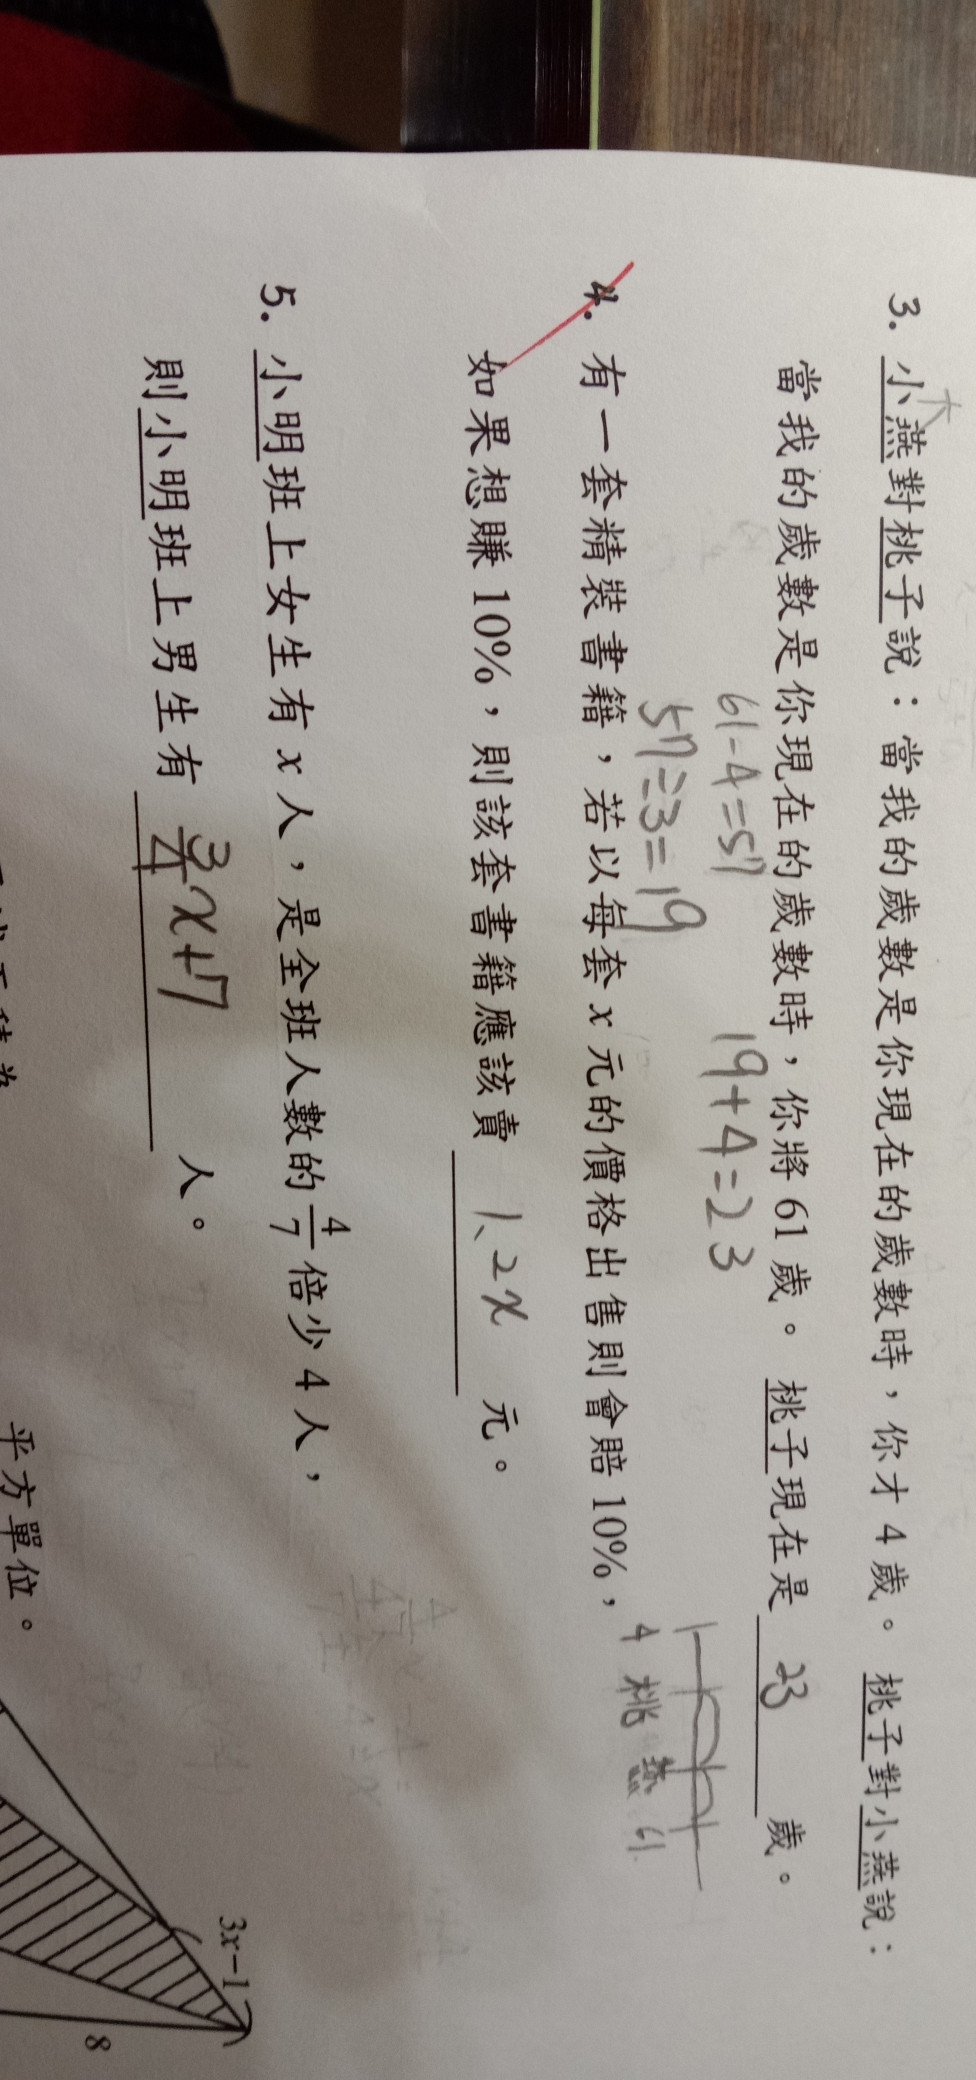 大
3. 小燕對桃子說：當我的歲數是你現在的歲數時，你才 4 歲。桃子對小燕說：
當我的歲數是你現在的歲數時，你將 61 歲。桃子現在是 23 歲。
61-4=57 19+4=23
57÷3=19
4 桃 燕 61
4. 有一套精裝書籍，若以每套 x 元的價格出售則會賠 10%，
如果想賺 10%，則該套書籍應該賣 1.2x 元。
5. 小明班上女生有 x 人，是全班人數的 4/7 倍少 4 人，
則小明班上男生有 3/4 x+7 人。
平方單位。
3x-1
8